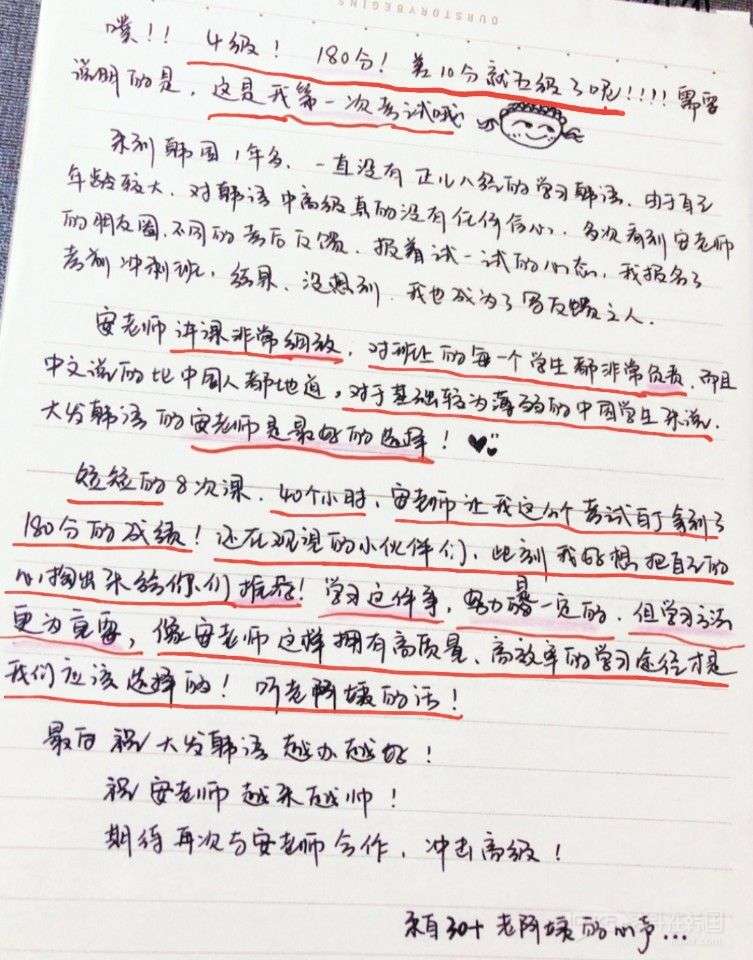 OURSTORYBEGINS
噗!! 4级! 180分! 差10分就五级了呢!!!! 需要
说明的是,这是我第一次考试哦
来到韩国1年多,一直没有正儿八经的学习韩语,由于自己
年龄较大,对韩语中高级真的没有任何信心,多次看到安老师
的朋友圈,不同的考后反馈,报着试一试的心态,我报名了
考前冲刺班,结果,没想到,我也成为了写反馈之人.
安老师讲课非常细致,对班上的每一个学生都非常负责,而且
中文说的比中国人都地道,对于基础较为薄弱的中国学生来说,
大发韩语的安老师是最好的选择!
短短的8次课,40个小时,安老师让我这个考试盲拿到了
180分的成绩!还在观望的小伙伴们,此刻我好想把自己的
心掏出来给你们推荐!学习这件事,努力是一定的,但学习方法
更为重要,像安老师这样拥有高质量、高效率的学习途径才是
我们应该选择的!听老阿姨的话!
最后祝大发韩语越办越好!
祝安老师越来越帅!
期待再次与安老师合作,冲击高级!
来自30+老阿姨的心声...